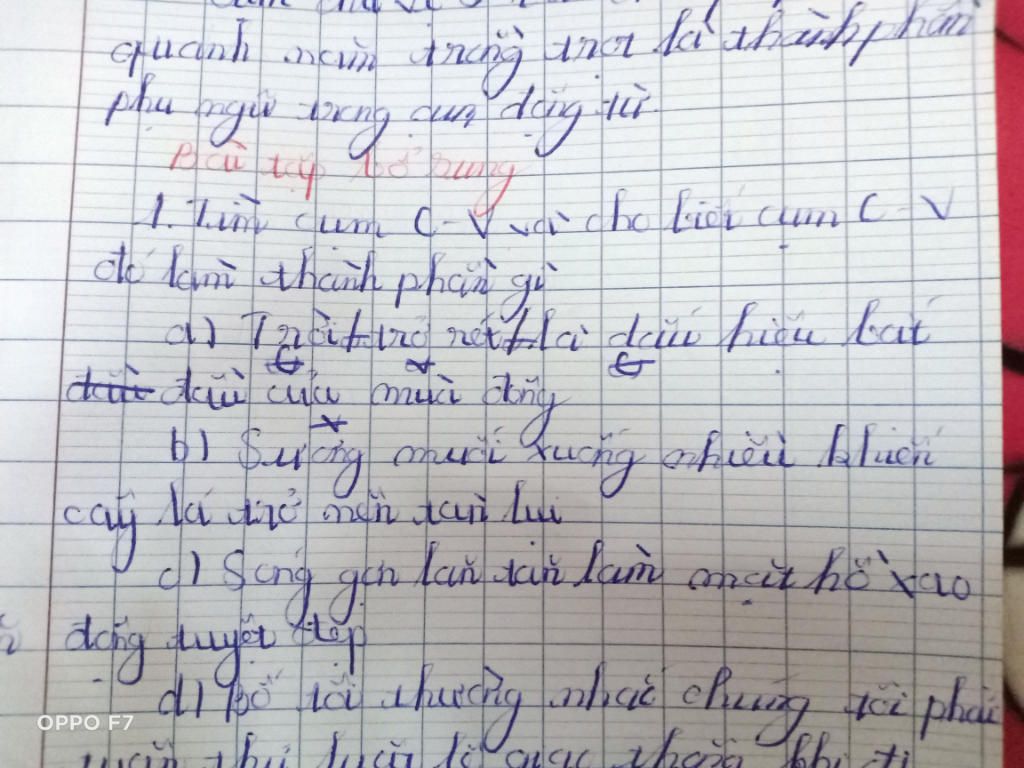 quanh năm trong trơi lá thành phần
phụ ngữ trong cụm động từ
Bài tập bổ sung
1. Tìm cụm C-V và cho biết cụm C-V
đó làm thành phần gì
a) Trời trở rét là dấu hiệu bắt
đầu của mùa đông
b) Sương muối xuống nhiều khiến
cây lá trở nên tàn lụi
c) Sóng gợn lăn tăn làm mặt hồ xao
động tuyệt đẹp
d) Bố tôi thường nhắc chúng tôi phải
khi đi
OPPO F7